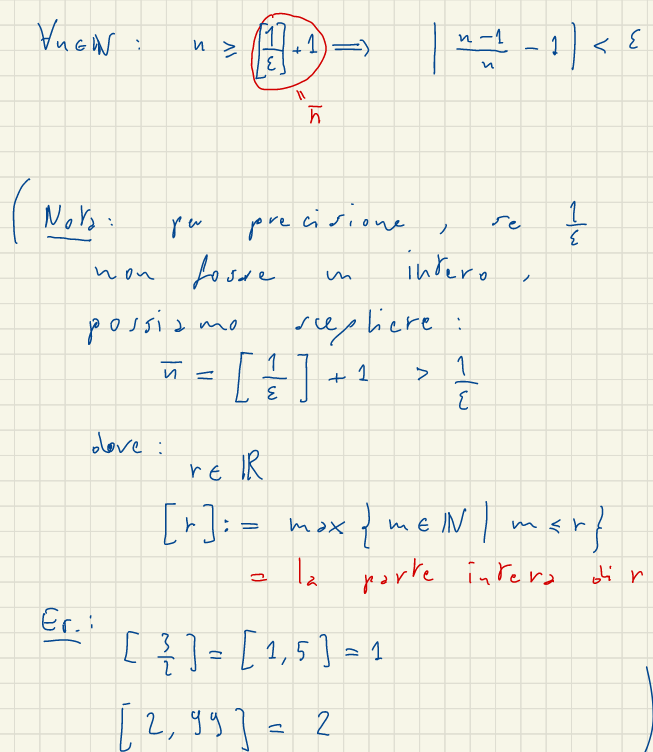 ∀n∈ℕ : n ≥ [1/ε] + 1 ⟹ | (n-1)/n - 1 | < ε
= n̄
( Nota: per precisione, se 1/ε
non fosse un intero,
possiamo scegliere:
n̄ = [1/ε] + 1 > 1/ε
dove:
r ∈ ℝ
[r] := max { m ∈ ℕ | m ≤ r }
= la parte intera di r
Es.:
[3/2] = [1,5] = 1
[2,99] = 2 )